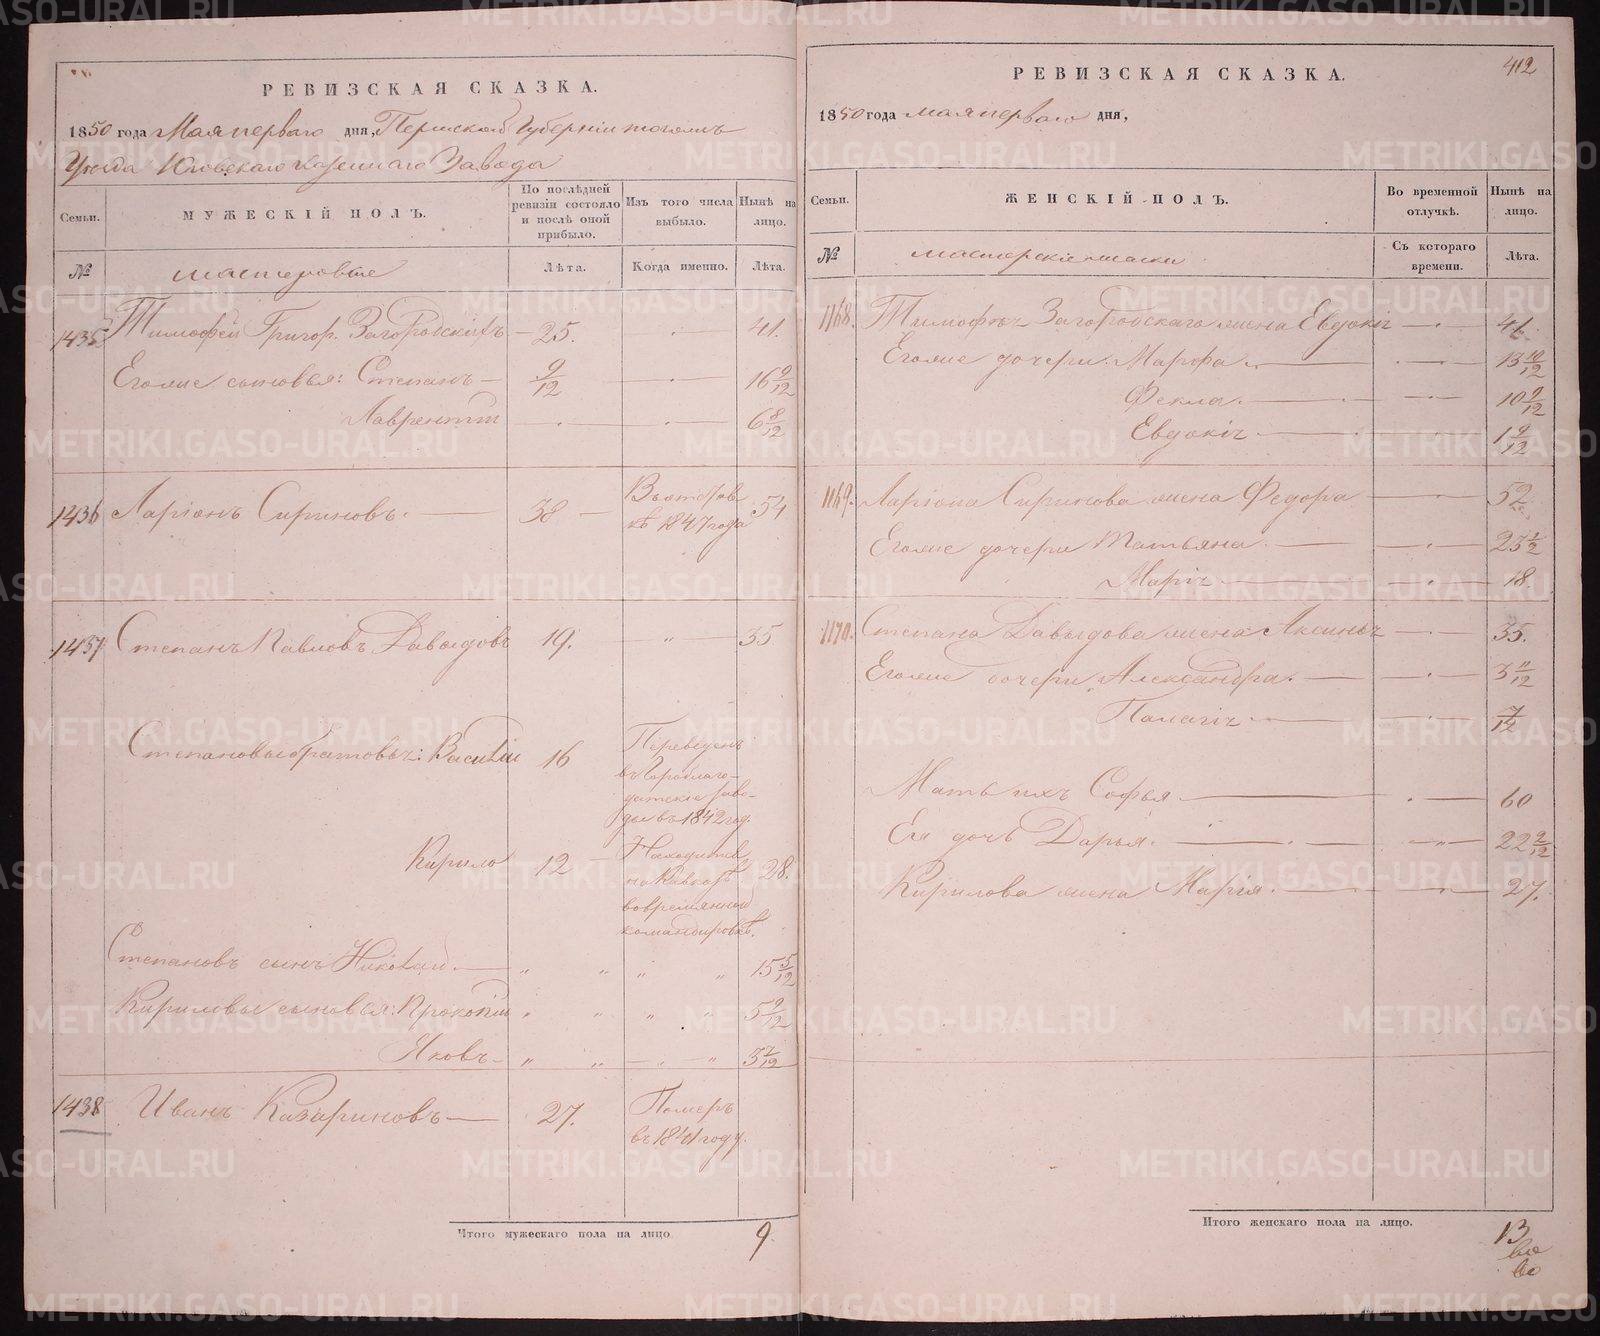 РЕВИЗСКАЯ СКАЗКА.
1850 года Мая перваго дня, Пермской Губерніи тогожъ
Уѣзда Юговскаго казеннаго Завода
Семьи.
МУЖЕСКІЙ ПОЛЪ.
По послѣдней ревизіи состояло и послѣ оной прибыло.
Изъ того числа выбыло.
Нынѣ на лицо.
№
мастеровые
Лѣта.
Когда именно.
Лѣта.
1435 Тимофей Григор. Загородскихъ — 25. 41.
Его же сыновья: Степанъ — 9/12 16 9/12
Лаврентій 6 8/12
1436 Ларіонъ Сириновъ. — 38 — Въ отстав
кѣ 1847 года 54
1437 Степанъ Павловъ Давыдовъ 19. — „ — 35
Степановы братовья: Василій 16 Переведенъ
въ Гороблаго-
датскіе заво-
ды въ 1842 год.
Кирило 12 — Находится 28.
на Кавказѣ
во временной
командировкѣ.
Степановъ сынъ Николай. — „ „ „ „ 15 5/12
Кириловы сыновья: Прокопій „ „ „ „ 5 9/12
Яковъ — „ „ — „ „ 3 7/12
1438 Иванъ Казариновъ — 27. Померъ
въ 1841 году.
Итого мужескаго пола на лицо 9.
РЕВИЗСКАЯ СКАЗКА.
412
1850 года мая перваго дня,
Семьи.
ЖЕНСКІЙ ПОЛЪ.
Во временной отлучкѣ.
Нынѣ на лицо.
№
Съ котораго времени.
Лѣта.
1168. Тимофѣя Загородскаго жена Евдокія 41.
Его же дочери: Марфа. 13 10/12
Фекла. 10 9/12
Евдокія 1 9/12
1169. Ларіона Сиринова жена Федора 52.
Его же дочери Татьяна. 23 1/2
Марія 18.
1170. Степана Давыдова жена Аксинья 35.
Его же дочери Александра. 3 11/12
Палагія 7/12
Мать ихъ Софья 60
Ея дочь Дарья. 22 9/12
Кирилова жена Марія. 27.
Итого женскаго пола на лицо. 13
METRIKI.GASO-URAL.RU